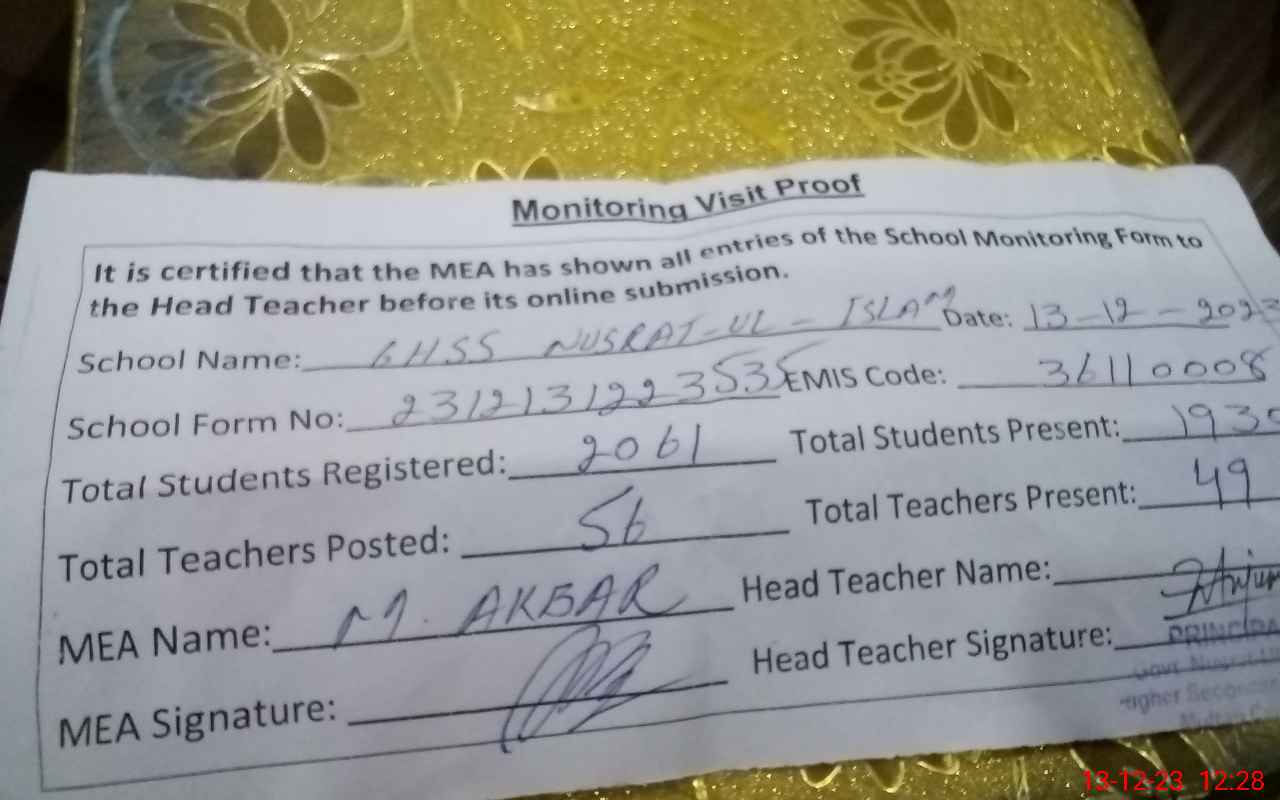 Monitoring Visit Proof
It is certified that the MEA has shown all entries of the School Monitoring Form to
the Head Teacher before its online submission.
School Name: GHSS NUSRAT-UL-ISLAM Date: 13-12-2023
School Form No: 2312131223535 EMIS Code: 36110008
Total Students Registered: 2061 Total Students Present: 1930
Total Teachers Posted: 56 Total Teachers Present: 49
MEA Name: M. AKBAR Head Teacher Name:
MEA Signature: Head Teacher Signature:
PRINCIPA
Govt. Nusrat-Ul
igher Secon
Multan C
13-12-23 12:28